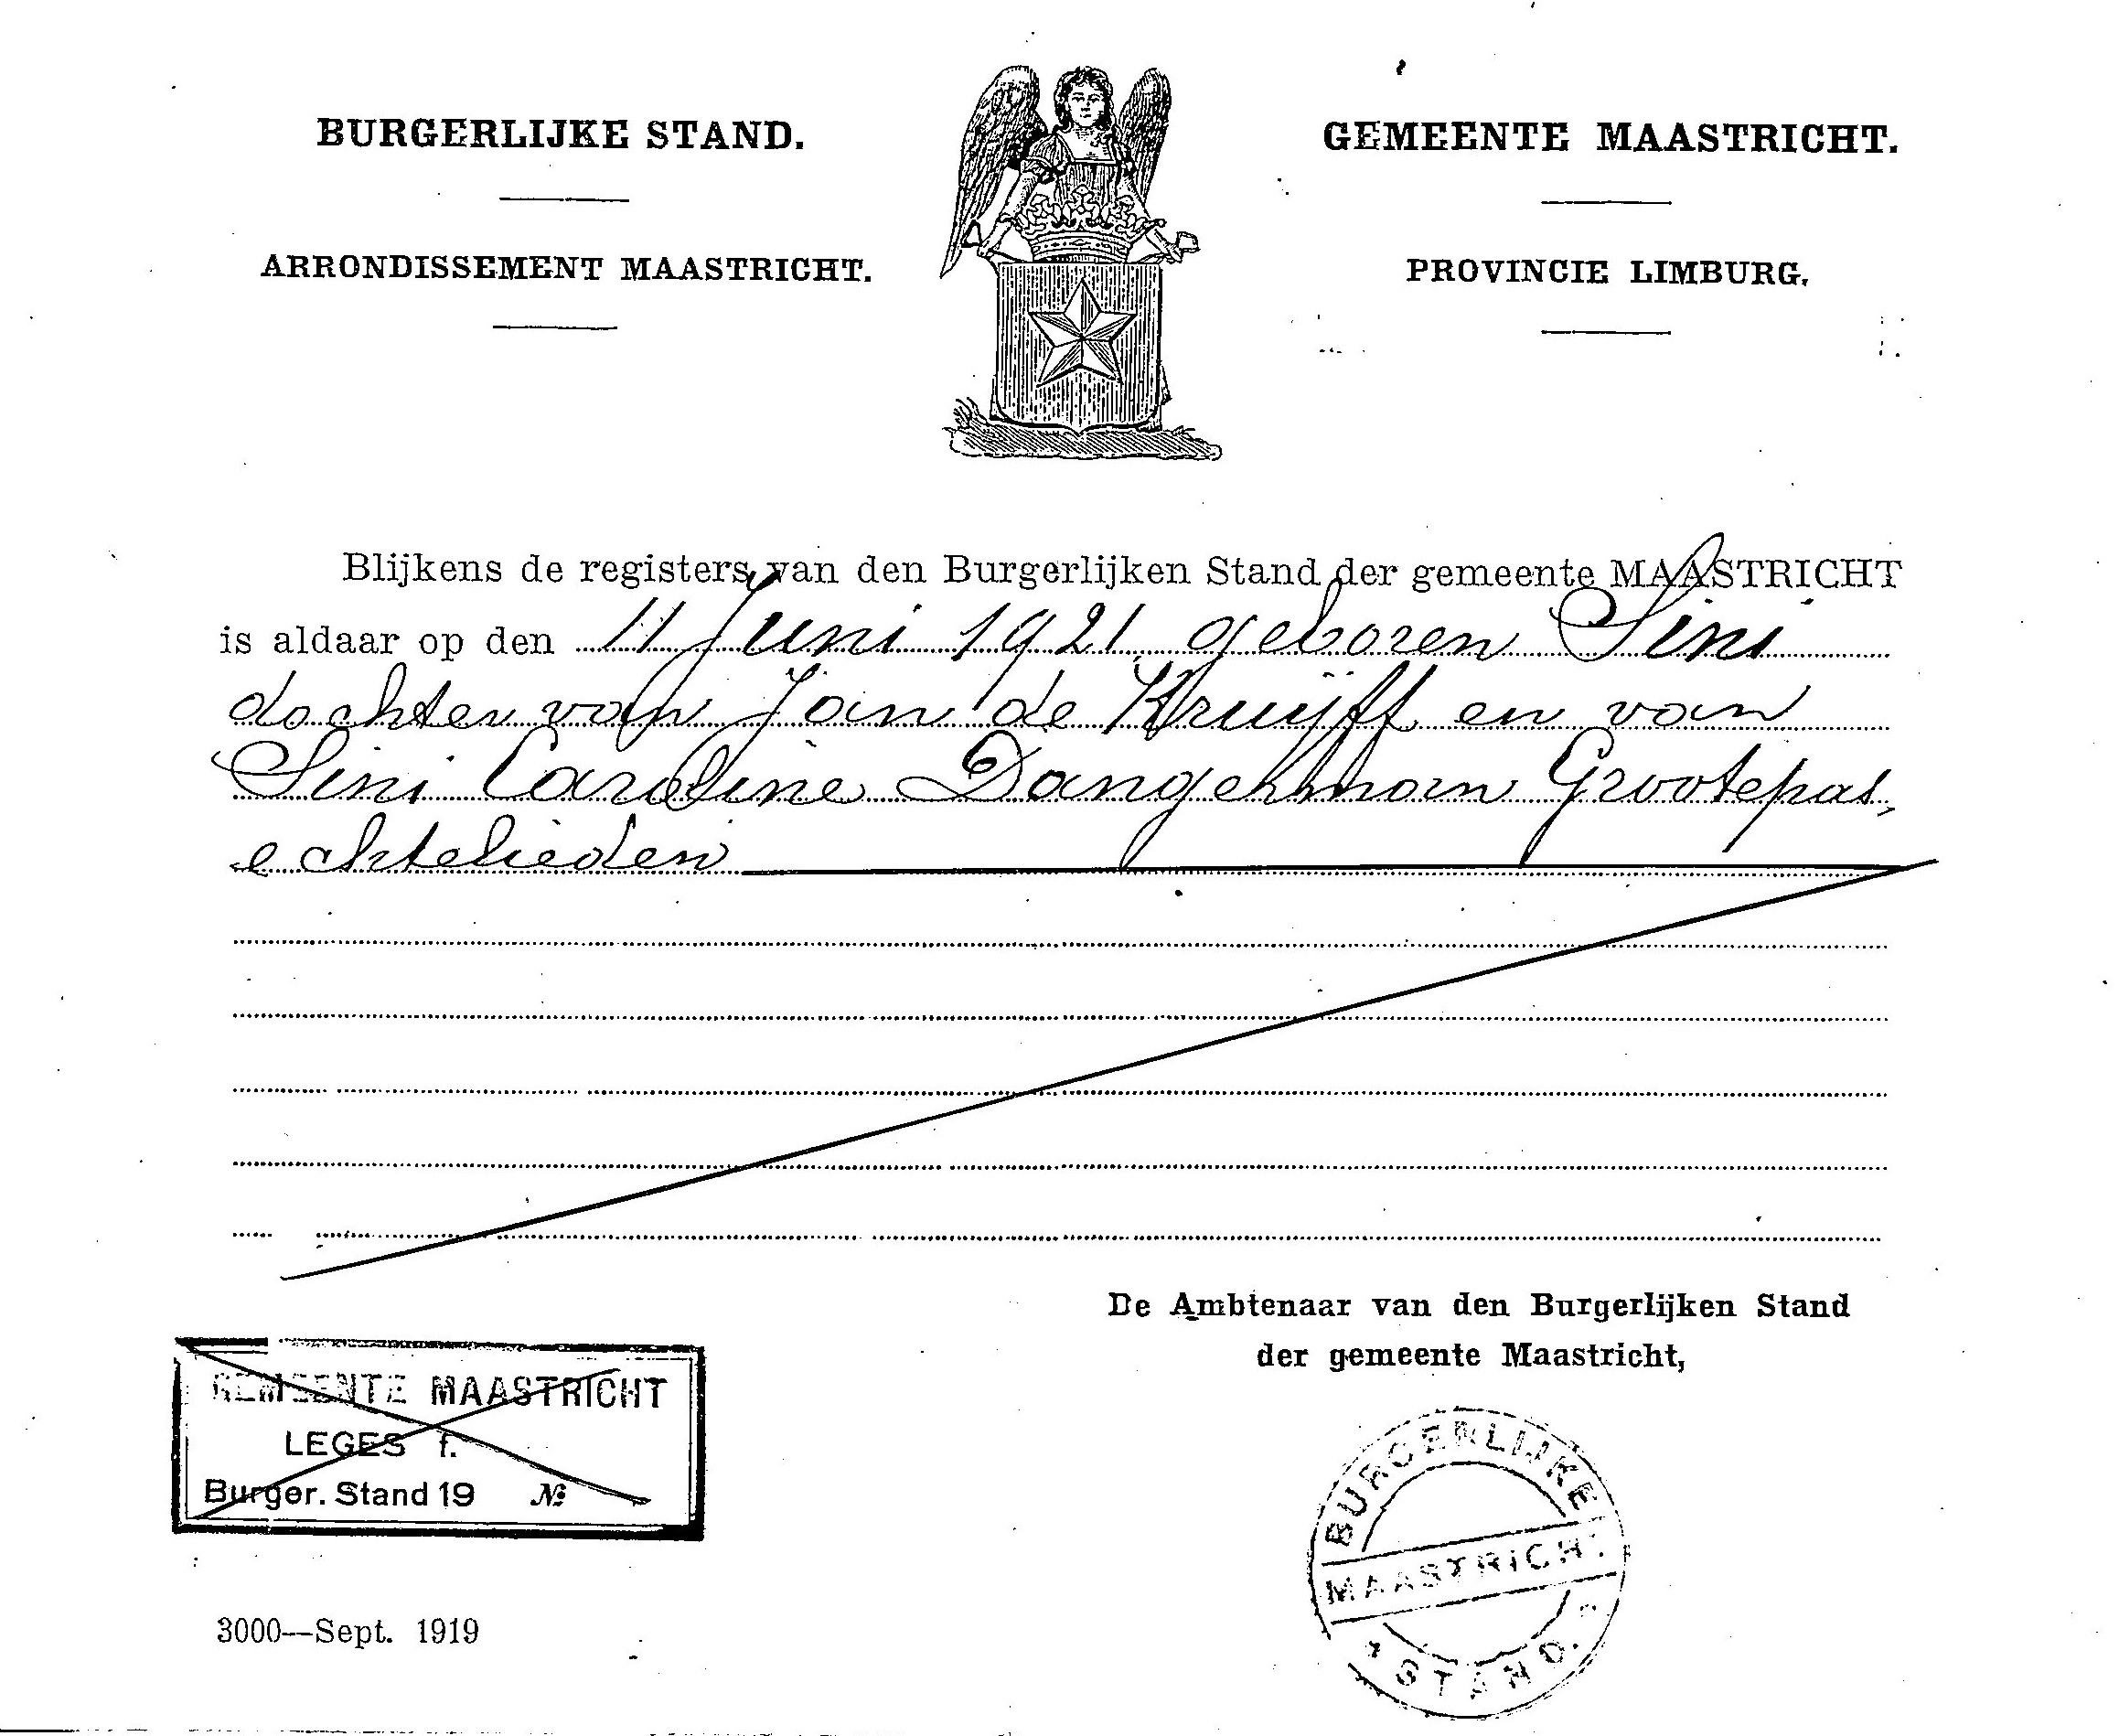 BURGERLIJKE STAND.
GEMEENTE MAASTRICHT.
ARRONDISSEMENT MAASTRICHT.
PROVINCIE LIMBURG.
Blijkens de registers van den Burgerlijken Stand der gemeente MAASTRICHT
is aldaar op den 11 Juni 1921 geboren Sini
dochter van Jan de Kruijff en van
Sini Caroline Grootepas,
echtelieden
De Ambtenaar van den Burgerlijken Stand
der gemeente Maastricht,
GEMEENTE MAASTRICHT
LEGES f.
Burger. Stand 19 №
BURGERLIJKE
MAASTRICHT
STAND.
3000—Sept. 1919